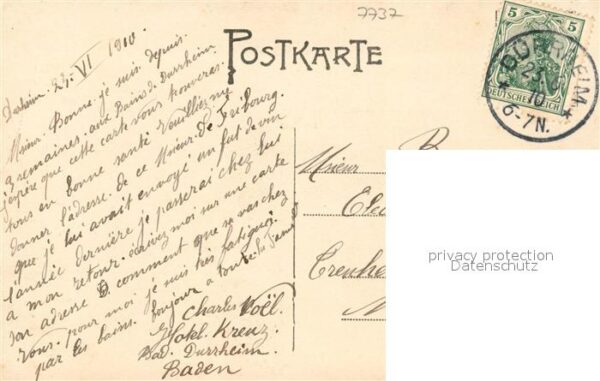 7737
POSTKARTE
5 5
DEUTSCHES REICH
DÜRRHEIM
23.6
10
6-7N.
Durheim. 23. VI 1910
Msieur Bonne. je suis depuis
3 semaines. aux Bains de Durrheim
j'espère que cette carte vous trouveras
tous en bonne santé Veuilliez me
donner l'adresse. de ce Msieur de Fribourg.
que je lui avait envoyé un fut de vin
l'année dernière je passerai chez lui
a mon retour. écrivez moi sur une carte
son adresse & comment que sa vas chez
vous. pour moi je suis très fatigué
par les bains. bonjour a toute la famil
Charles Noël.
Hotel. Kreuz.
Bad. Durrheim.
Baden
Msieur B
Creuhe
M
privacy protection
Datenschutz